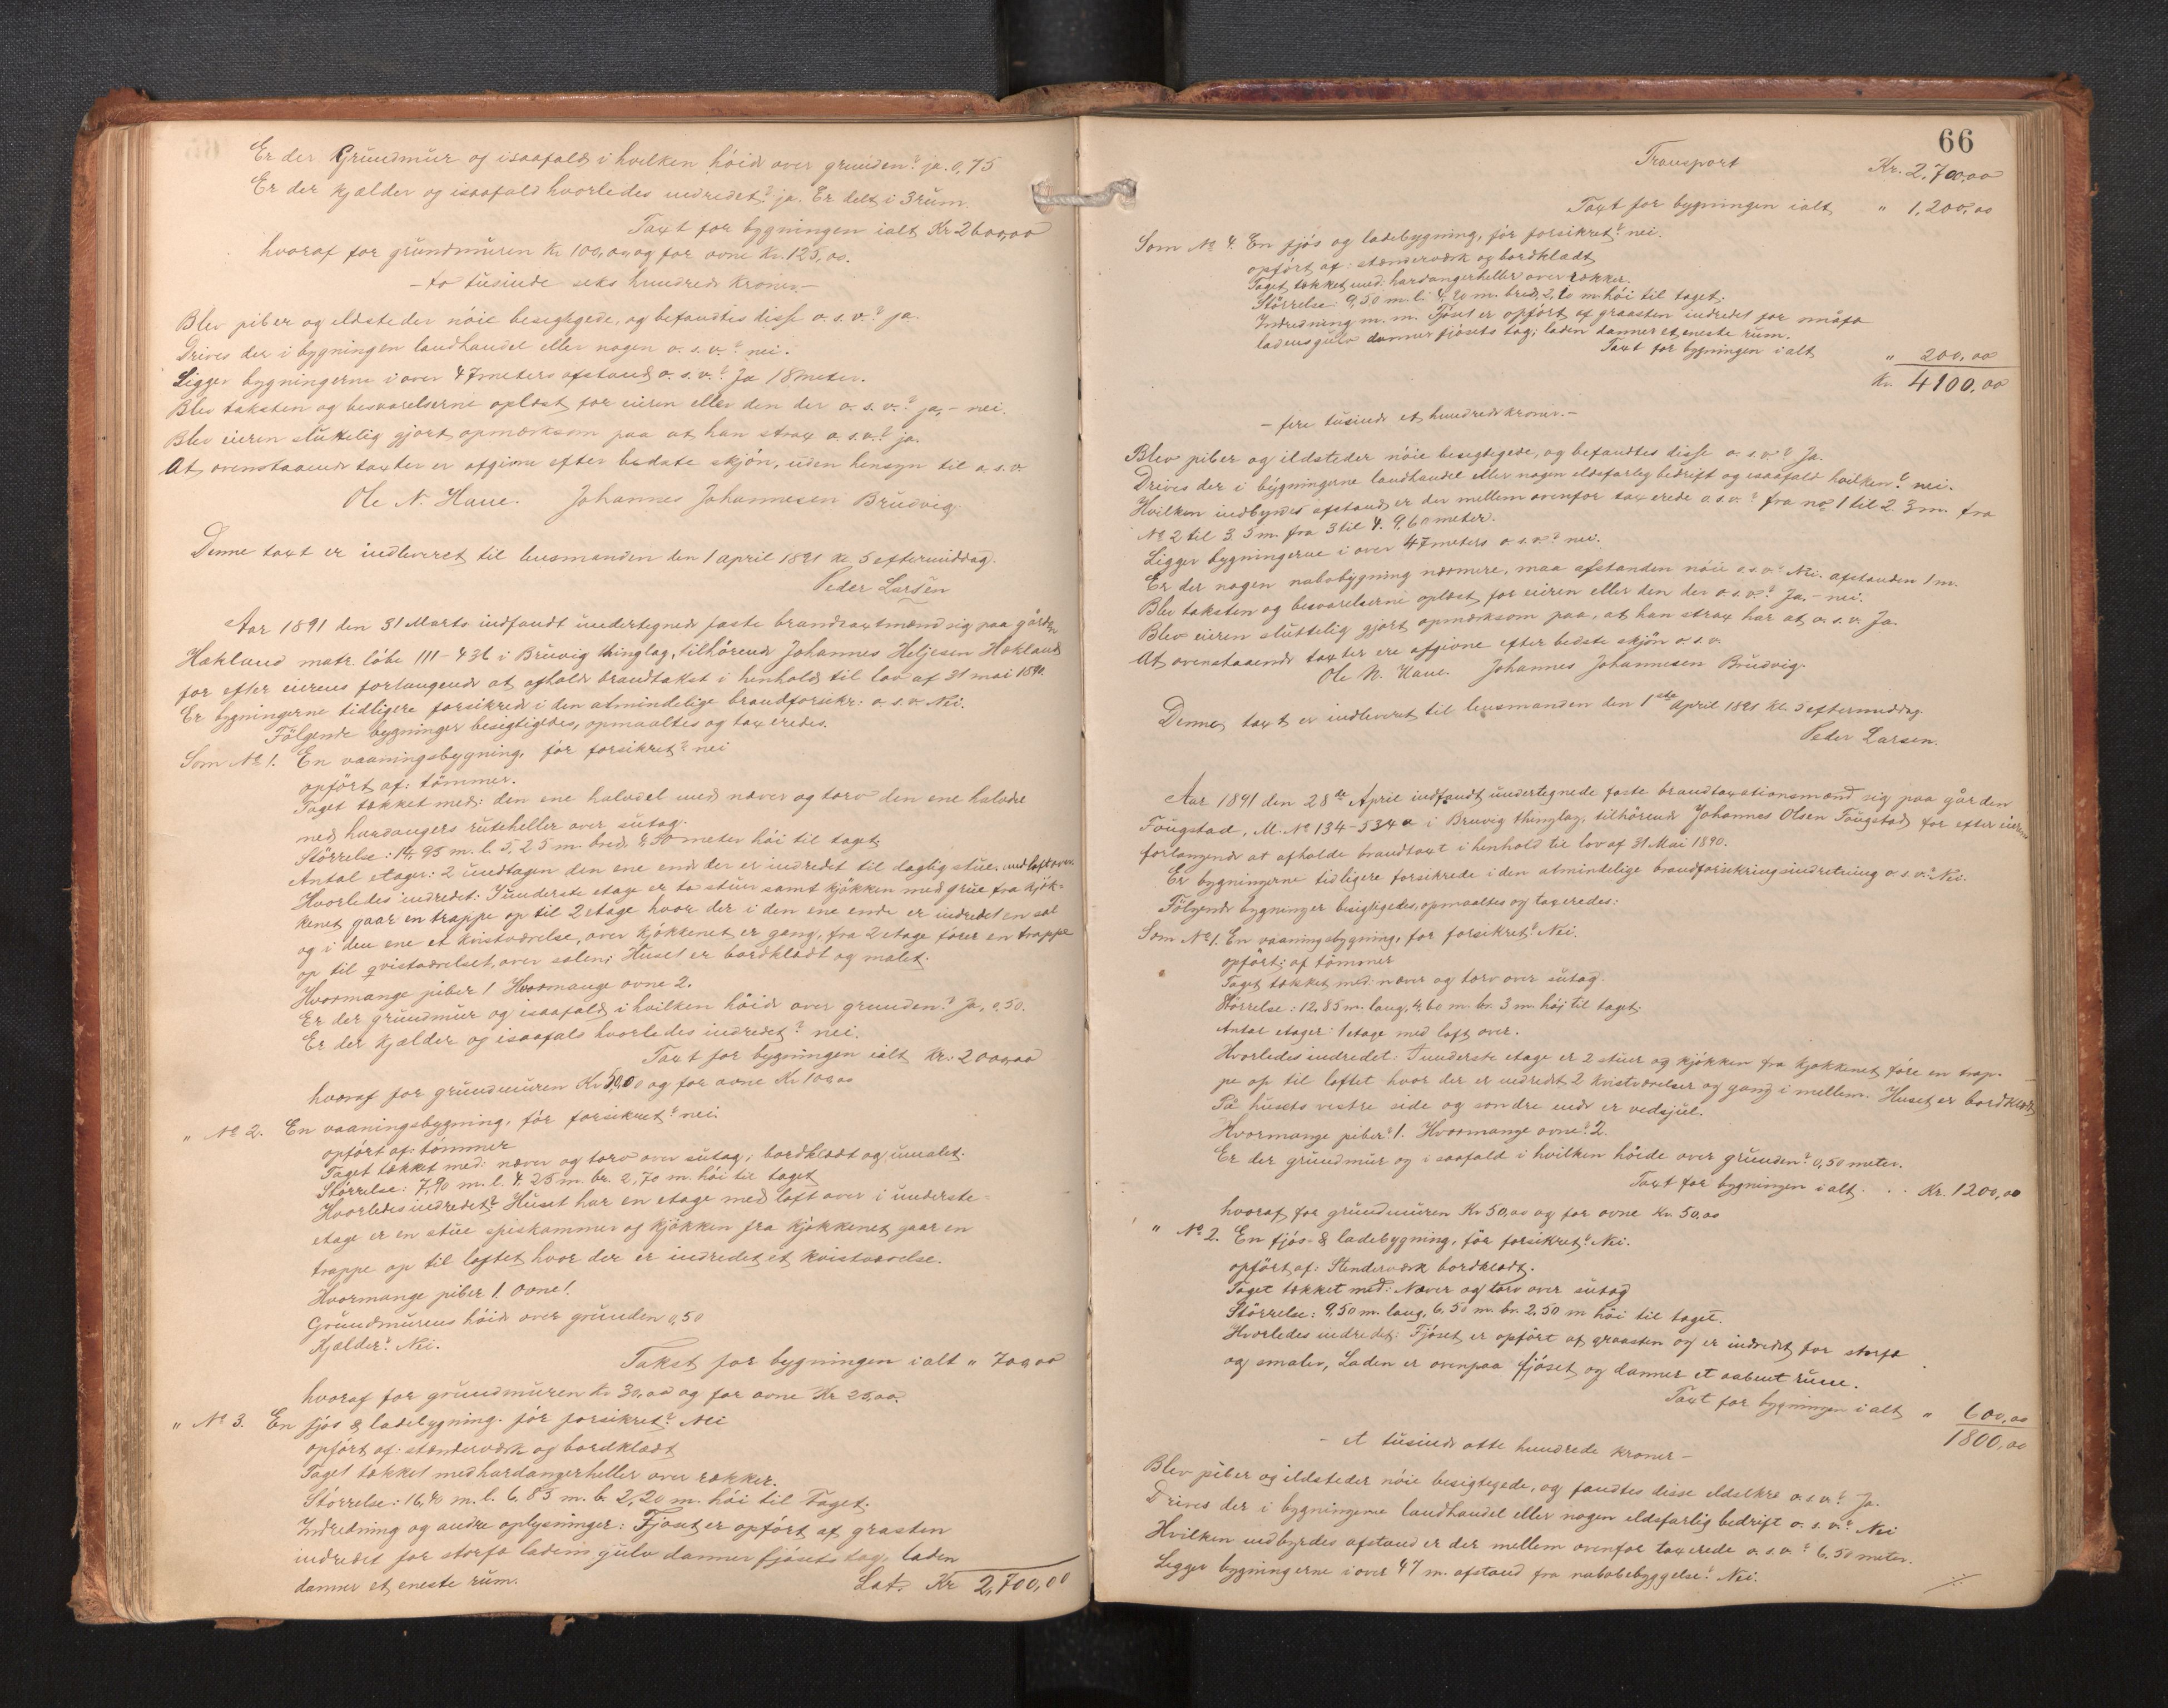 Er der Grundmur og isaafald i hvilken höide over grunden? ja. 0,75
Er der kjælder og isaafald hvorledes indredet? ja. Er delt i 3 rum.
Taxt for bygningen ialt Kr 2600,00
hvoraf for grundmuren Kr 100,00 og for ovne Kr. 125,00.
- to tusinde seks hundrede kroner. -
Blev piber og ildsteder nöie besigtigede, og befandtes disse o. s. v.? ja.
Drives der i bygningen landhandel eller nogen o. s. v.? nei.
Ligger bygningerne i over 47 meters afstand o. s. v.? Ja 18 meter.
Blev taksten og besvarelserne oplæst for eieren eller den der o. s. v.? ja, - nei.
Blev eieren slutelig gjort opmærksom paa at han strax o. s. v.? ja.
At ovenstaaende taxter er afgivne efter bedste skjön, uden hensyn til o. s. v
Ole N. Haue. Johannes Johannesen Brudvig.
Denne taxt er indleveret til lensmanden den 1 april 1891 kl. 5 eftermiddag.
Peder Larsen
Aar 1891 den 31 Marts indfandt undertegnede faste brandtaxtmænd sig paa gården
Hækland matr. löbe 111-436 i Bruvig thinglag, tilhörende Johannes Heljesen Hækland
for efter eierens forlangende at afholde brandtakst i henhold til lov af 31 mai 1890.
Er bygningerne tidligere forsikrede i den almindelige brandforsikr: o. s. v. Nei.
Fölgende bygninger besigtigedes, opmaaltes og taxeredes.
Som No 1. En vaaningsbygning, för forsikret? nei
opfört af: tömmer.
Taget tækket med: den ene halvdel med næver og torv den ene halvdel
med hardangers ruteheller over sutag.
Störrelse: 14,95 m. l. 5,25 m. bred, 4,50 meter höi til taget
Antal etager: 2 undtagen den ene ende der er indredet til daglig stue, med loft over
Hvorledes indredet: I underste etage er to stuer samt kjökken med grue fra kjök-
kenet gaar en trappe op til 2 etage hvor der i den ene ende er indredet en sal
og i den ene et kvistværelse, over kjökkenet er gang, fra 2 etage förer en trappe
op til qvistværelset, over salen; Huset er bordklædt og malet.
Hvormange piber 1 Hvormange ovne 2.
Er der grundmur og isaafald i hvilken höide over grunden? Ja, 0,50.
Er der kjælder og isaafald hvorledes indredet? nei.
Taxt for bygningen ialt Kr: 2000,00
hvoraf for grundmuren Kr 50,00 og for ovne Kr 100,00
" No 2. En vaaningsbygning, för forsikret? nei.
opfört af: tömmer
Taget tækket med: næver og torv over sutag; bordklædt og umalet.
Störrelse: 7,90 m. l. 4,25 m. br. 2,70 m. höi til taget
Hvorledes indredet? Huset har en etage med loft over i underste
etage er en stue spiskammer og kjökken fra kjökkenet gaar en
trappe op til loftet hvor der er indredet et kvistværelse.
Hvormange piber 1. Ovne 1.
Grundmurens höide over grunden 0,50
Kjælder? Nei.
Takst for bygningen ialt " 700,00
hvoraf for grundmuren Kr 30,00 og for ovne Kr 25,00.
" No 3. En fjös & ladebygning. för forsikret? Nei
opfört af: stænderværk og bordklædt
Taget tækket med hardangerheller over rækker.
Störrelse: 16,40 m. l. 6,85 m. b. 2,20 m. höi til Taget.
Indredning og andre oplysninger: Fjöset er opfört af grasten
indredet for storfæ ladens gulv danner fjösets tag, laden
danner et eneste rum.
Lat. Kr 2,700,00
66
Transport Kr. 2,700,00
Taxt for bygningen ialt " 1,200,00
Som No 4. En fjös og ladebygning, för forsikret? nei.
opfört af: stænderværk og bordklædt
Taget tækket med: hardangerheller over rækker.
Störrelse: 9,50 m. l. 4,20 m. bred, 2,20 m. höi til taget.
Indredning m. m. Fjöset er opfört af graasten indredet for småfæ
ladens gulv danner fjösets tag; laden danner et eneste rum.
Taxt for bygningen ialt " 200,00
Kr. 4100,00
- fire tusinde et hundrede kroner. -
Blev piber og ildsteder nöie besigtigede, og befandtes disse o. s. v.? Ja.
Drives der i bygningerne landhandel eller nogen ildsfarlig bedrift og isaafald hvilken? nei.
Hvilken indbyrdes afstand er der mellem ovenfor taxerede o. s. v.? fra no 1 til 2. 3 m. fra
No 2 til 3. 5 m. fra 3 til 4. 9,60 meter.
Ligger bygningerne i over 47 meters o. s. v.? nei.
Er der nogen nabobygning nærmere, maa afstanden nöie o. s. v. Nei. afstanden 1 m.
Blev taksten og besvarelserne oplæst for eieren eller den der o. s. v.? Ja, - nei.
Blev eieren sluttelig gjort opmærksom paa, at han strax har at o. s. v. Ja.
At ovenstaaende taxter ere afgivne efter bedste skjön o. s. v.
Ole N. Haue. Johannes Johannesen Brudvig.
Denne taxt er indleveret til lensmanden den 1ste April 1891 kl. 5 eftermiddag.
Peder Larsen.
Aar 1891 den 28de April indfandt undertegnede faste brandtaxationsmænd sig paa gården
Fougstad, M. No 134-534 a i Bruvig thinglag, tilhörende Johannes Olsen Fougstad for efter eierens
forlangende at afholde brandtaxt i henhold til lov af 31 Mai 1890.
Er bygningerne tidligere forsikrede i den almindelige brandforsikringsindretning o. s. v.? Nei.
Fölgende bygninger besigtigedes, opmaaltes og taxeredes:
Som No 1. En vaaningsbygning, för forsikret? Nei.
opfört: af tömmer
Taget tækket med: næver og torv over sutag.
Störrelse: 12,85 m. lang, 4,60 m. br. 3 m. höj til taget.
Antal etager: 1 etage med loft over.
Hvorledes indredet: I underste etage er 2 stuer og kjökken fra kjøkkenet före en trap-
pe op til loftet hvor der er indredt 2 kvistværelser og gang i mellem. Huset er bordklædt
På husets vestre side og söndre ende er vedsjul.
Hvormange piber? 1. Hvormange ovne? 2.
Er der grundmur og isaafald i hvilken höide over grunden? 0,50 meter.
Taxt for bygningen ialt . . . Kr. 1200,00
hvoraf for grundmuren Kr 50,00 og for ovne Kr. 50,00
" No 2. En fjös- & ladebygning, för forsikret? Nei.
opfört af: Stenderværk bordklædt.
Taget tækket med: Næver og torv over sutag
Störrelse: 9,50 m. lang, 6,50 m. br. 2,50 m höi til taget.
Hvorledes indredet: Fjöset er opfört af graasten og er indredet for storfæ
og smaler, Laden er ovenpaa fjöset og danner et aabent rum.
Taxt for bygningen ialt " 600,00
1800,00
- et tusinde otte hundrede kroner -
Blev piber og ildsteder nöie besigtigede, og fandtes disse ildsikre o. s. v.? Ja.
Drives der i bygningerne landhandel eller nogen ildsfarlig bedrift o. s. v.? Nei
Hvilken indbyrdes afstand er der mellem ovenfor taxerede o. s. v.? 6,50 meter.
Ligger bygningerne i over 47 m. afstand fra nabobebyggelse? Nei.